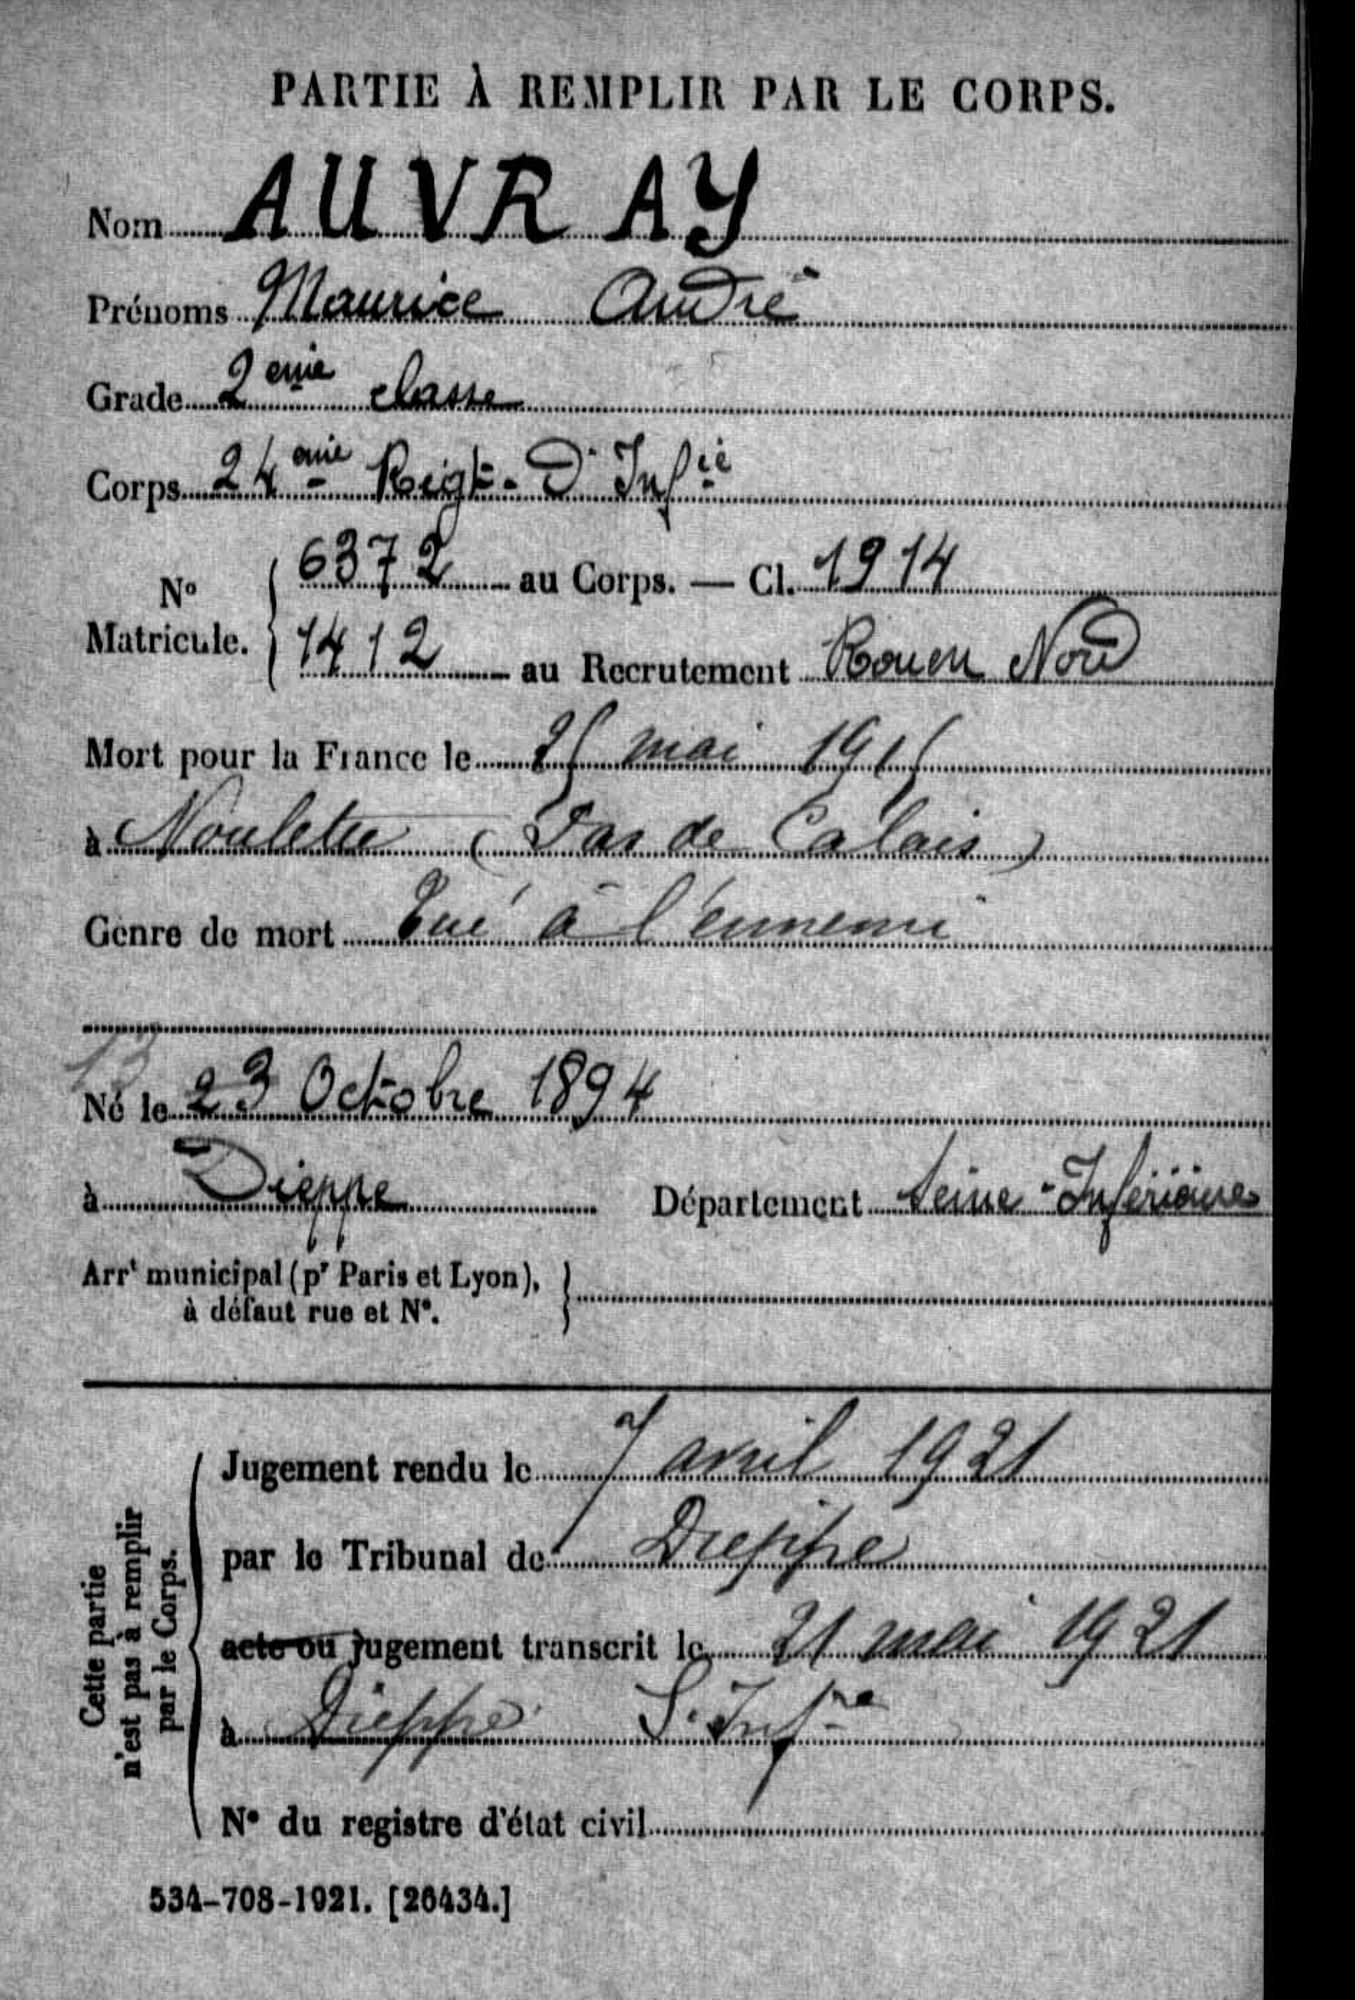 PARTIE À REMPLIR PAR LE CORPS.
Nom AUVRAY
Prénoms Maurice André
Grade 2eme classe
Corps 24eme Regt. D'Infie
No Matricule. 6372 au Corps. — Cl. 1914
1412 au Recrutement Rouen Nord
Mort pour la France le 25 mai 1915
à Noulette (Pas de Calais)
Genre de mort Tué à l'ennemi
13
Né le 23 Octobre 1894
à Dieppe Département Seine-Inférieure
Arrt municipal (pr Paris et Lyon),
à défaut rue et N°.
Cette partie
n'est pas à remplir
par le Corps.
Jugement rendu le 7 avril 1921
par le Tribunal de Dieppe
acte ou jugement transcrit le 21 mai 1921
à Dieppe S. Infre
N° du registre d'état civil
534-708-1921. [26434.]